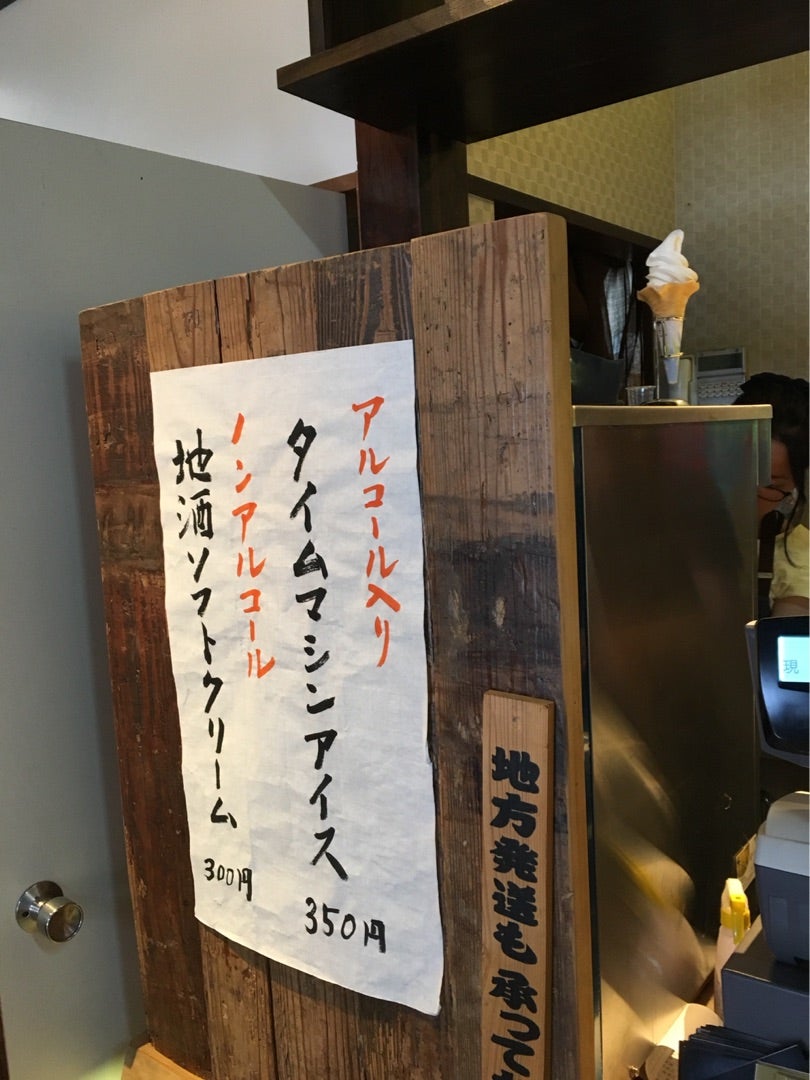 アルコール入り
タイムマシンアイス
350円
ノンアルコール
地酒ソフトクリーム
300円
地方発送も承って
現